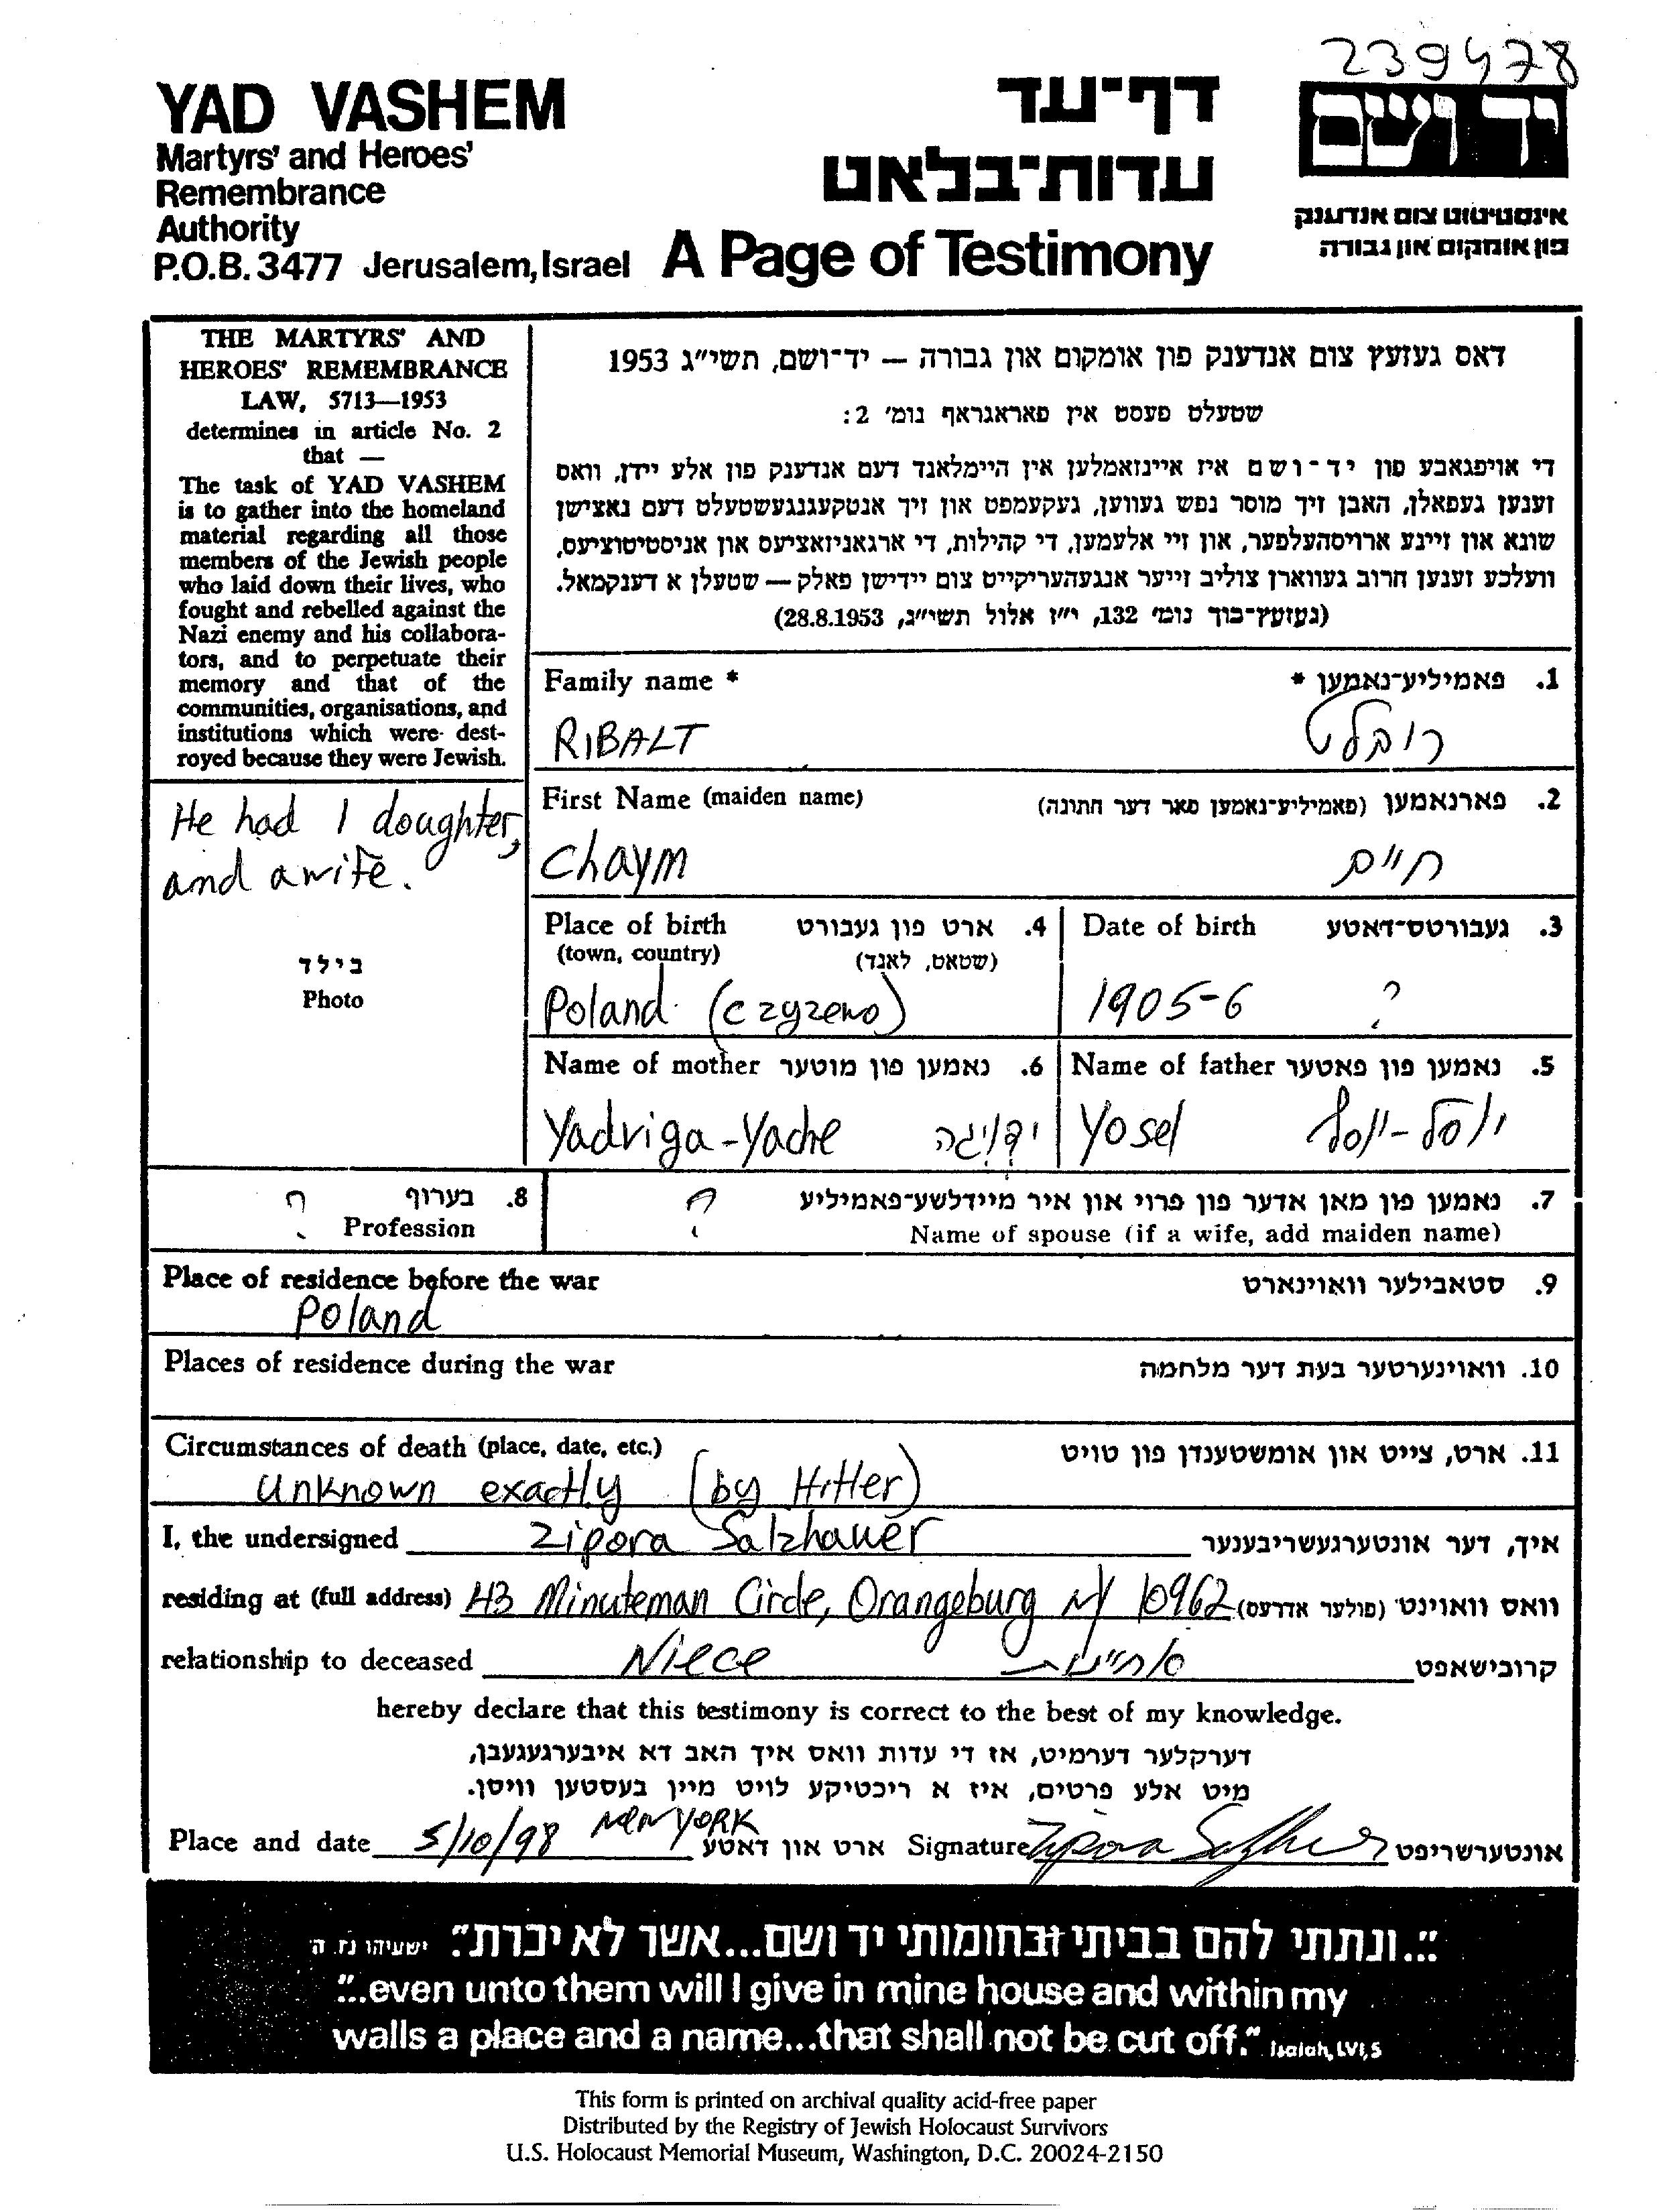 239478
YAD VASHEM
Martyrs' and Heroes'
Remembrance
Authority
P.O.B. 3477 Jerusalem, Israel
דף־עד
עדות־בלאט
A Page of Testimony
יד ושם
אינסטיטוט צום אנדענק
פון אומקום און גבורה
THE MARTYRS' AND
HEROES' REMEMBRANCE
LAW, 5713—1953
determines in article No. 2
that —
The task of YAD VASHEM
is to gather into the homeland
material regarding all those
members of the Jewish people
who laid down their lives, who
fought and rebelled against the
Nazi enemy and his collabora-
tors, and to perpetuate their
memory and that of the
communities, organisations, and
institutions which were dest-
royed because they were Jewish.
דאס געזעץ צום אנדענק פון אומקום און גבורה — יד־ושם, תשי״ג 1953
שטעלט פעסט אין פאראגראף נומ' 2:
די אויפגאבע פון יד־ושם איז איינזאמלען אין היימלאנד דעם אנדענק פון אלע יידן, וואס
זענען געפאלן, האבן זיך מוסר נפש געווען, געקעמפט און זיך אנטקעגנגעשטעלט דעם נאצישן
שונא און זיינע ארויסהעלפער, און זיי אלעמען, די קהילות, די ארגאניזאציעס און אניסטיטוציעס,
וועלכע זענען חרוב געווארן צוליב זייער אנגעהעריקייט צום יידישן פאלק — שטעלן א דענקמאל.
(געזעץ־בוך נומ' 132, י״ז אלול תשי״ג, 28.8.1953)
Family name * פאמיליע־נאמען * .1
RIBALT
First Name (maiden name) פארנאמען (פאמיליע־נאמען פאר דער חתונה) .2
Chaym חיים
He had 1 doughter,
and a wife.
בילד
Photo
Place of birth ארט פון געבורט .4
(town, country) (שטאט, לאנד)
Poland (czyzewo)
Date of birth געבורטס־דאטע .3
1905-6 ?
Name of mother נאמען פון מוטער .6
Yadviga-Yache ידויגה
Name of father נאמען פון פאטער .5
Yosel יוסל-יוסף
? בערוף .8
Profession
? נאמען פון מאן אדער פון פרוי און איר מיידלשע־פאמיליע .7
Name of spouse (if a wife, add maiden name)
Place of residence before the war סטאבילער וואוינארט .9
Poland
Places of residence during the war וואוינערטער בעת דער מלחמה .10
Circumstances of death (place, date, etc.) ארט, צייט און אומשטענדן פון טויט .11
Unknown exactly (by Hitler)
I, the undersigned Zipora Salzhauer איך, דער אונטערגעשריבענער
residing at (full address) 43 Minuteman Circle, Orangeburg NY 10962 וואס וואוינט (פולער אדרעס)
relationship to deceased Niece אחיינית קרובישאפט
hereby declare that this testimony is correct to the best of my knowledge.
דערקלער דערמיט, אז די עדות וואס איך האב דא איבערגעגעבן,
מיט אלע פרטים, איז א ריכטיקע לויט מיין בעסטען וויסן.
Place and date 5/10/98 NEW YORK ארט און דאטע Signature Zipora אונטערשריפט
"...ונתתי להם בביתי ובחומותי יד ושם...אשר לא יכרת" ישעיהו נו, ה'
"...even unto them will I give in mine house and within my
walls a place and a name...that shall not be cut off." Isaiah, LVI, 5
This form is printed on archival quality acid-free paper
Distributed by the Registry of Jewish Holocaust Survivors
U.S. Holocaust Memorial Museum, Washington, D.C. 20024-2150